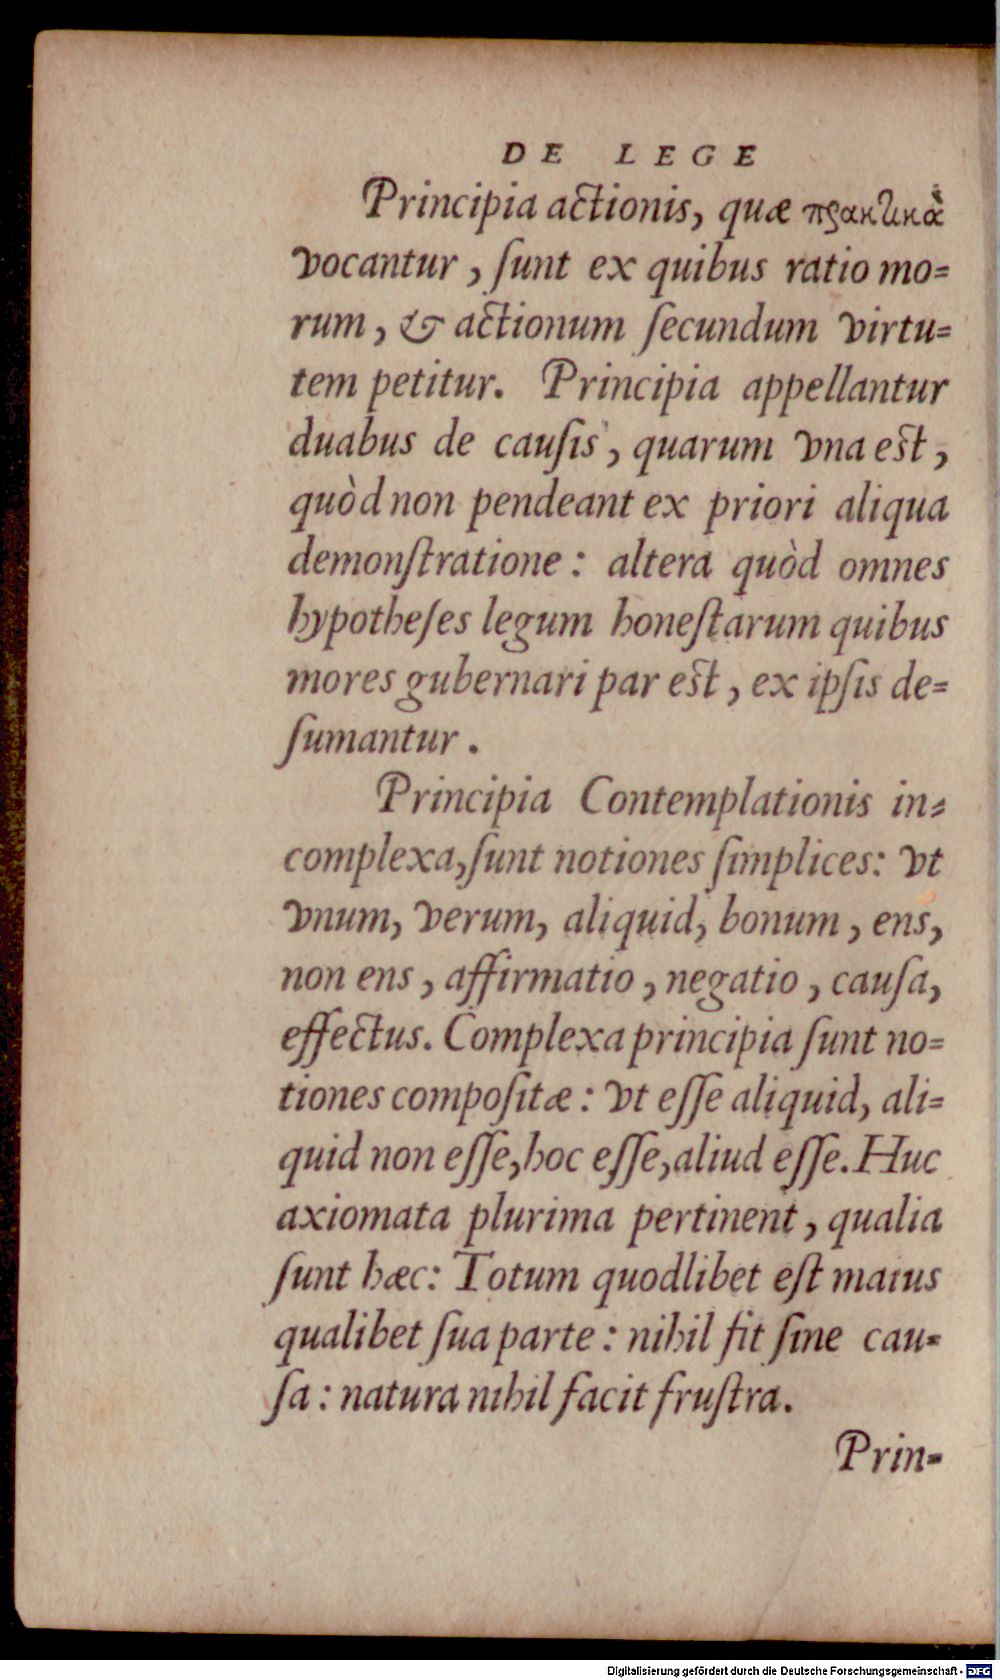 DE LEGE
Principia actionis, quæ πρακτικὰ
vocantur, ſunt ex quibus ratio mo-
rum, & actionum ſecundum virtu-
tem petitur. Principia appellantur
duabus de cauſis, quarum vna est,
quòd non pendeant ex priori aliqua
demonſtratione: altera quòd omnes
hypotheſes legum honeſtarum quibus
mores gubernari par est, ex ipſis de-
ſumantur.
Principia Contemplationis in-
complexa, ſunt notiones ſimplices: vt
vnum, verum, aliquid, bonum, ens,
non ens, affirmatio, negatio, cauſa,
effectus. Complexa principia ſunt no-
tiones compoſitæ: vt eſſe aliquid, ali-
quid non eſſe, hoc eſſe, aliud eſſe. Huc
axiomata plurima pertinent, qualia
ſunt hæc: Totum quodlibet eſt maius
qualibet ſua parte: nihil fit ſine cau-
ſa: natura nihil facit fruſtra.
Prin-
Digitalisierung gefördert durch die Deutsche Forschungsgemeinschaft - DFG